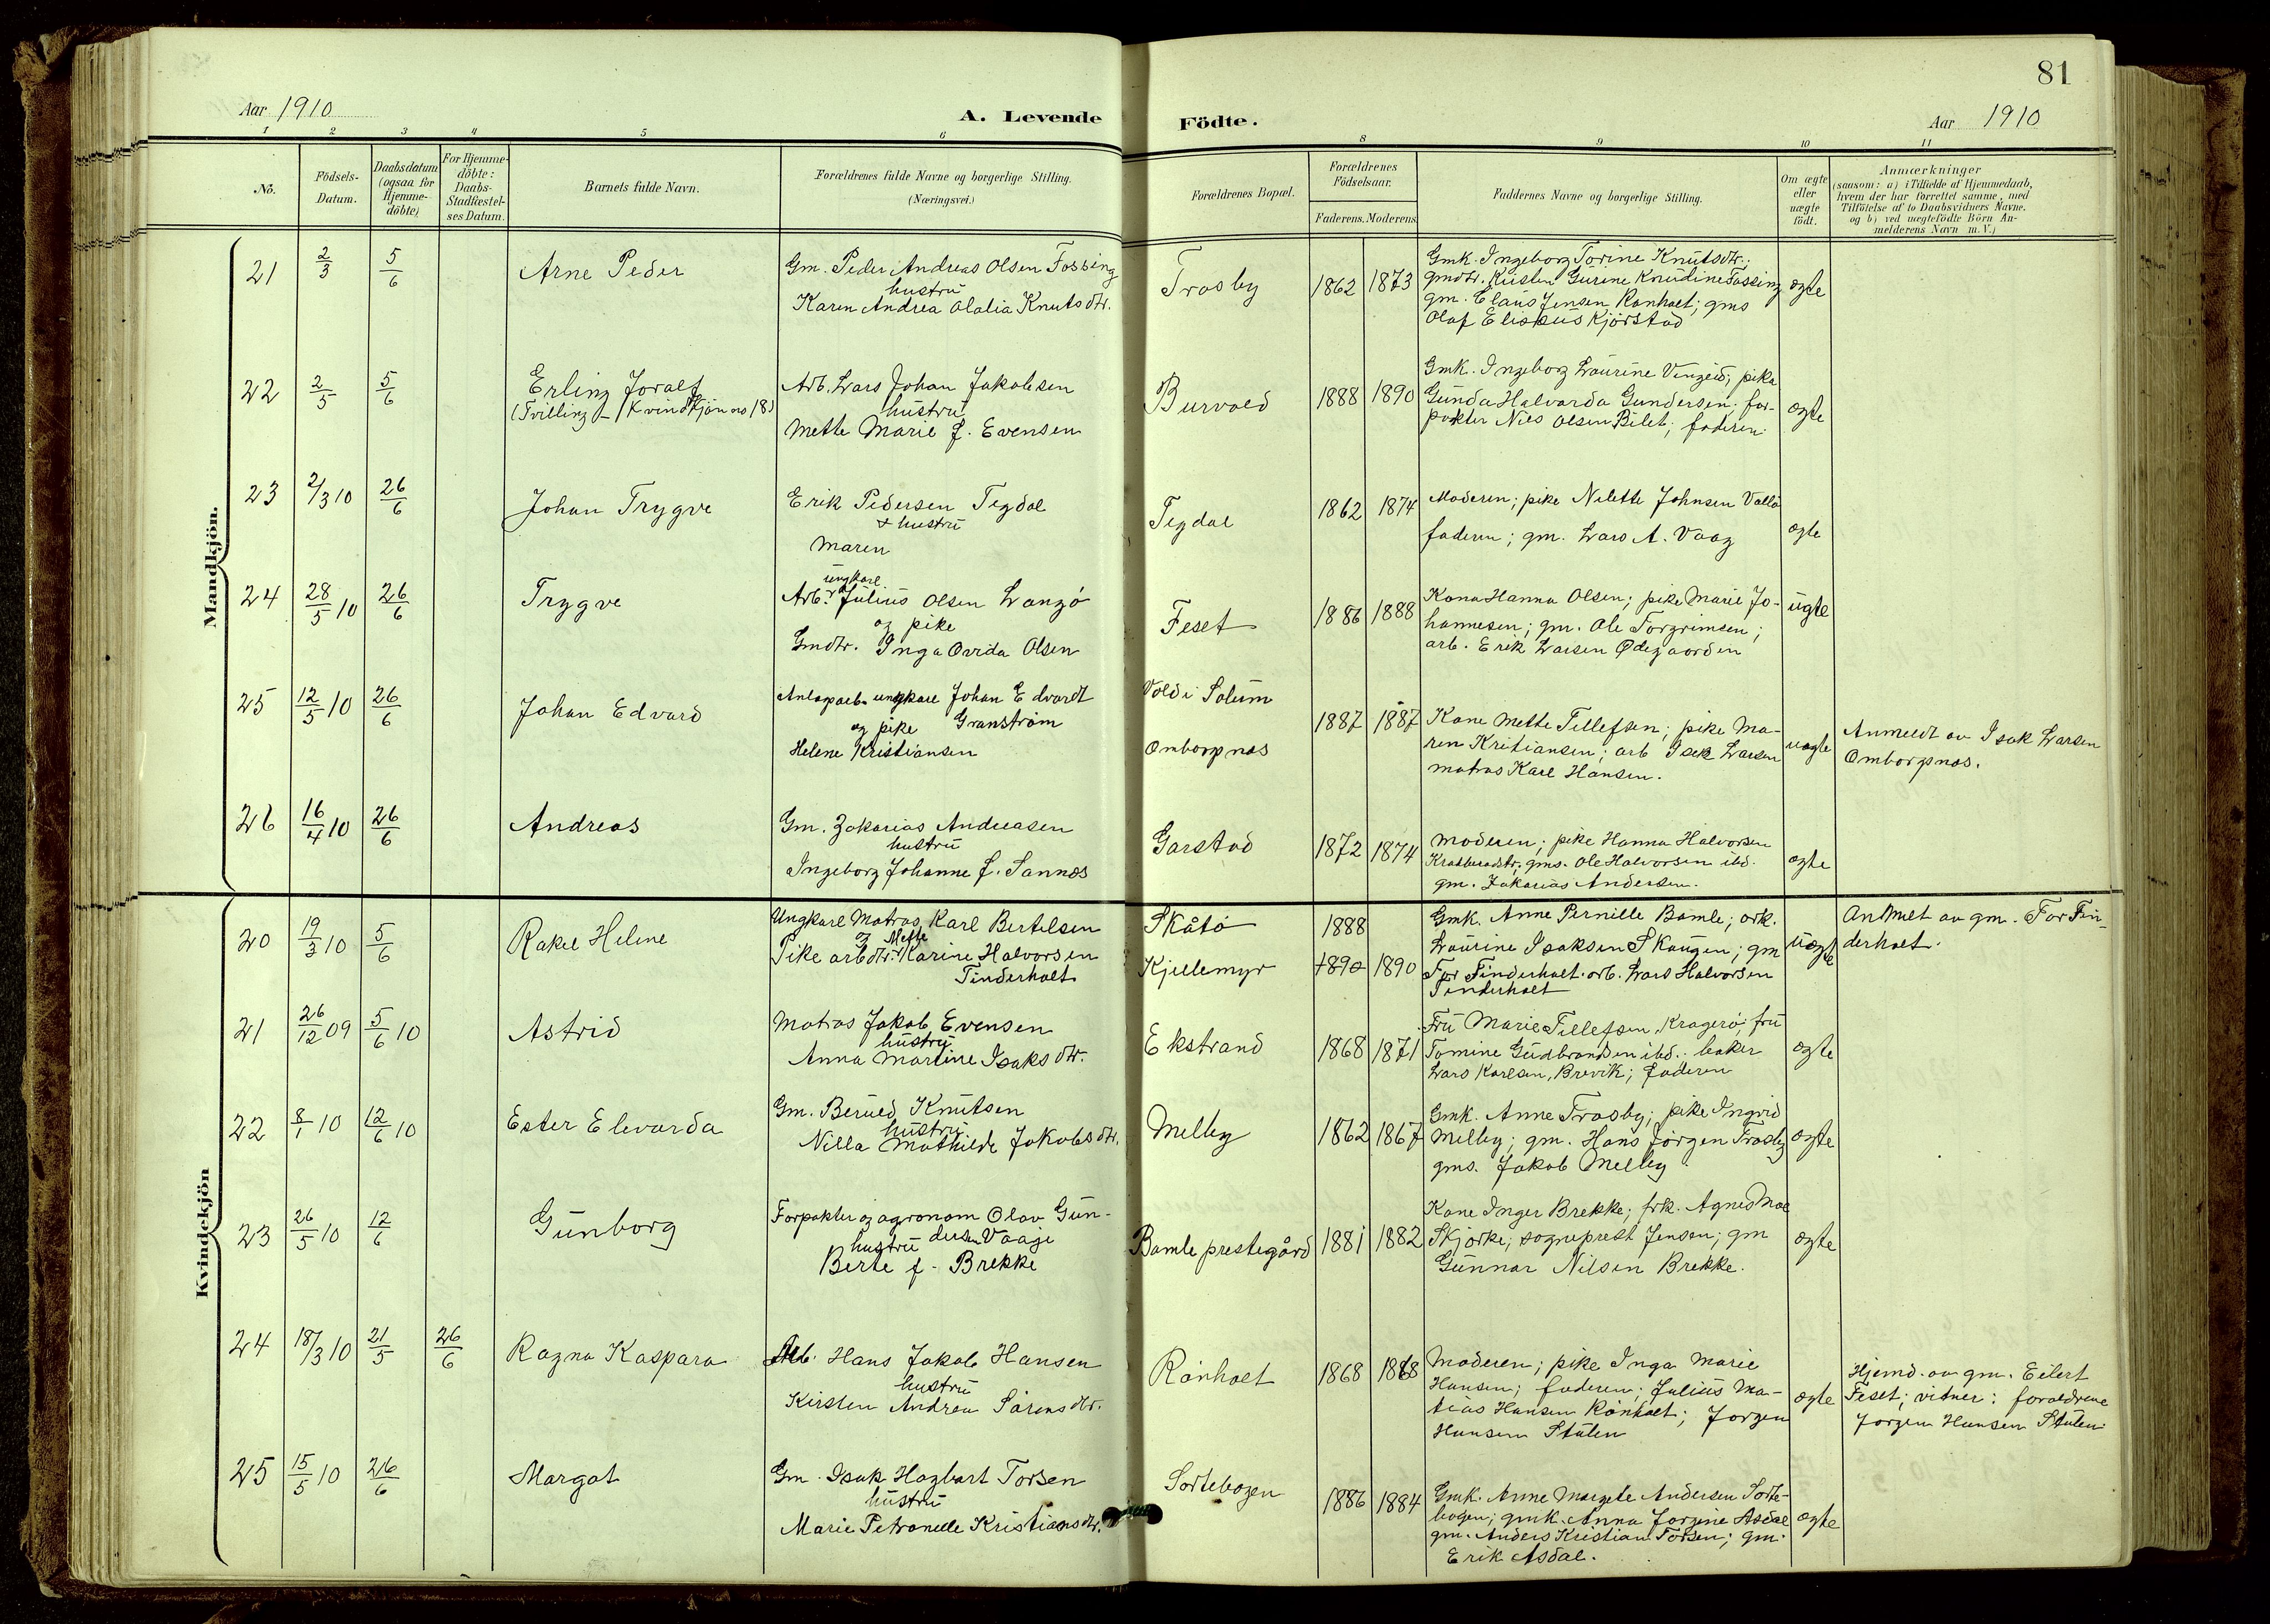 81
Aar 1910
A. Levende
Födte.
Aar 1910
1 2 3 4 5 6 8 9 10 11
No.
Födsels-
Datum.
Daabsdatum
(ogsaa for
Hjemme-
döbte)
For Hjemme-
döbte:
Daabs-
Stadfæstel-
ses Datum.
Barnets fulde Navn.
Forældrenes fulde Navne og borgerlige Stilling.
(Næringsvei.)
Forældrenes Bopæl.
Forældrenes
Födselsaar.
Faderens. Moderens.
Faddernes Navne og borgerlige Stilling.
Om ægte
eller
uægte
födt.
Anmærkninger
(saasom: a) i Tilfælde af Hjemmedaab,
hvem der har forrettet samme, med
Tilföielse af to Daabsvidners Navne.
og b) ved uægtefödte Börn An-
melderens Navn m. V.)
Mandkjön.
21
2/3
5/6
Arne Peder
Gm. Peder Andreas Olsen Fossing
hustru
Karen Andrea Olalia Knutsdtr.
Trosby
1862 1873
Gmk. Ingeborg Torine Knutsdtr.;
gmdtr. Kristen Gurine Knudine Fossing
gm. Claus Jensen Rønholt; gms
Olaf Eliseus Kjørstad
ægte
22
2/5
5/6
Erling Joralf
(Tvilling – Kvindkjøn no 18)
Arb. Lars Johan Jakobsen
hustru
Mette Marie f. Evensen
Burvold
1888 1890
Gmk. Ingeborg Laurine Vinzeid; pike
Gunda Halvarda Gundersen; for-
pakter Niels Olsen Bilet; faderen.
ægte
23
2/3 10
26/6
Johan Trygve
Erik Pedersen Tegdal
& hustru
Maren
Tegdal
1862 1874
Moderen; pike Nilette Johnsen Valle
faderen; gm. Lars A. Vaag
ægte
24
28/5 10
26/6
Trygve
ungkarl
Arb. Julius Olsen Langø
og pike
Gmdtr. Inga Ovida Olsen
Feset
1886 1888
Kona Hanna Olsen; pike Marie Jo-
hannesen; gm. Ole Torgrimsen;
arb. Erik Larsen Ødegaarden
uægte
25
12/5 10
26/6
Johan Edvard
Anlægsarb. ungkarl Johan Edvardt
og pike Granstrøm
Helene Kristiansen
Vold i Solum
Omborsnes
1887 1887
Kone Mette Tellefsen; pike Ma-
ren Kristiansen; arb Isak Larsen
matros Karl Hansen.
uægte
Anmeldt av Isak Larsen
Omborsnes.
26
16/4 10
26/6
Andreas
Gm. Zakarias Andreasen
hustru
Ingeborg Johanne f. Sannes
Garstad
1872 1874
Moderen; pike Hanna Halvorsen
gms. Ole Halvorsen ibd.
gm. Zakarias Andersen.
ægte
Kvindekjön
20
19/3 10
5/6
Rakel Helene
Ungkarl Matros Karl Bertelsen
og Mette
Pike arbdtr. Karine Halvorsen
Tinderholt
Skåtø
Kjellemyr
1888
1890 1890
Gmk. Anne Pernille Bamle; ork.
Laurine Isaksen Skaugen; gm
Tor Tinderholt. arb. Lars Halvorsen
Tinderholt
uægte
Anmelt av gm. Tor Tin-
derholt.
21
26/12 09
5/6 10
Astrid
Matros Jakob Evensen
hustru
Anna Martine Isaksdtr.
Ekstrand
1868 1871
Fru Marie Tellefsen, Kragerø; fru
Tomine Gudbrandsen ibd.; baker
Lars Karlsen, Brevik; faderen
ægte
22
8/1 10
12/6 10
Ester Elevarda
Gm. Beruld Knutsen
hustru
Nilla Mathilde Jakobsdtr.
Melby
1862 1867
Gmk. Anne Trosby; pike Ingrid
Melby; gm. Hans Jørgen Trosby
gms. Jakob Melby
ægte
23
26/5 10
12/6
Gunborg
Forpakter og agronom Olav Gun-
dersen Vaaje
hustru
Berte f. Brekke
Bamle prestegård
1881 1882
Kone Inger Brekke; frk. Agnes Moe
Skjørke; sogneprest Jensen; gm
Gunnar Nilsen Brekke.
ægte
24
18/3 10
21/5
26/6
Ragna Kaspara
Arb. Hans Jakob Hansen
hustru
Kirsten Andrea Sørensdtr.
Rønholt
1868 1868
Moderen; pike Inga Marie
Hansen; faderen; Julius Ma-
tias Hansen Rønholt; Jørgen
Hansen Stulen
ægte
Hjemd. av gm. Eilert
Feset; vitner: foraeldrene
Jørgen Hansen Stulen.
25
15/5 10
26/6
Margot
Gm. Isak Hagbart Torsen
hustru
Marie Petronelle Kristiansdtr.
Sortebogen
1886 1884
Gmk. Anne Margete Andersen Sorte-
bogen; gmk. Anna Jorgine Asdal
gm. Anders Kristian Torsen; gm.
Erik Asdal.
ægte